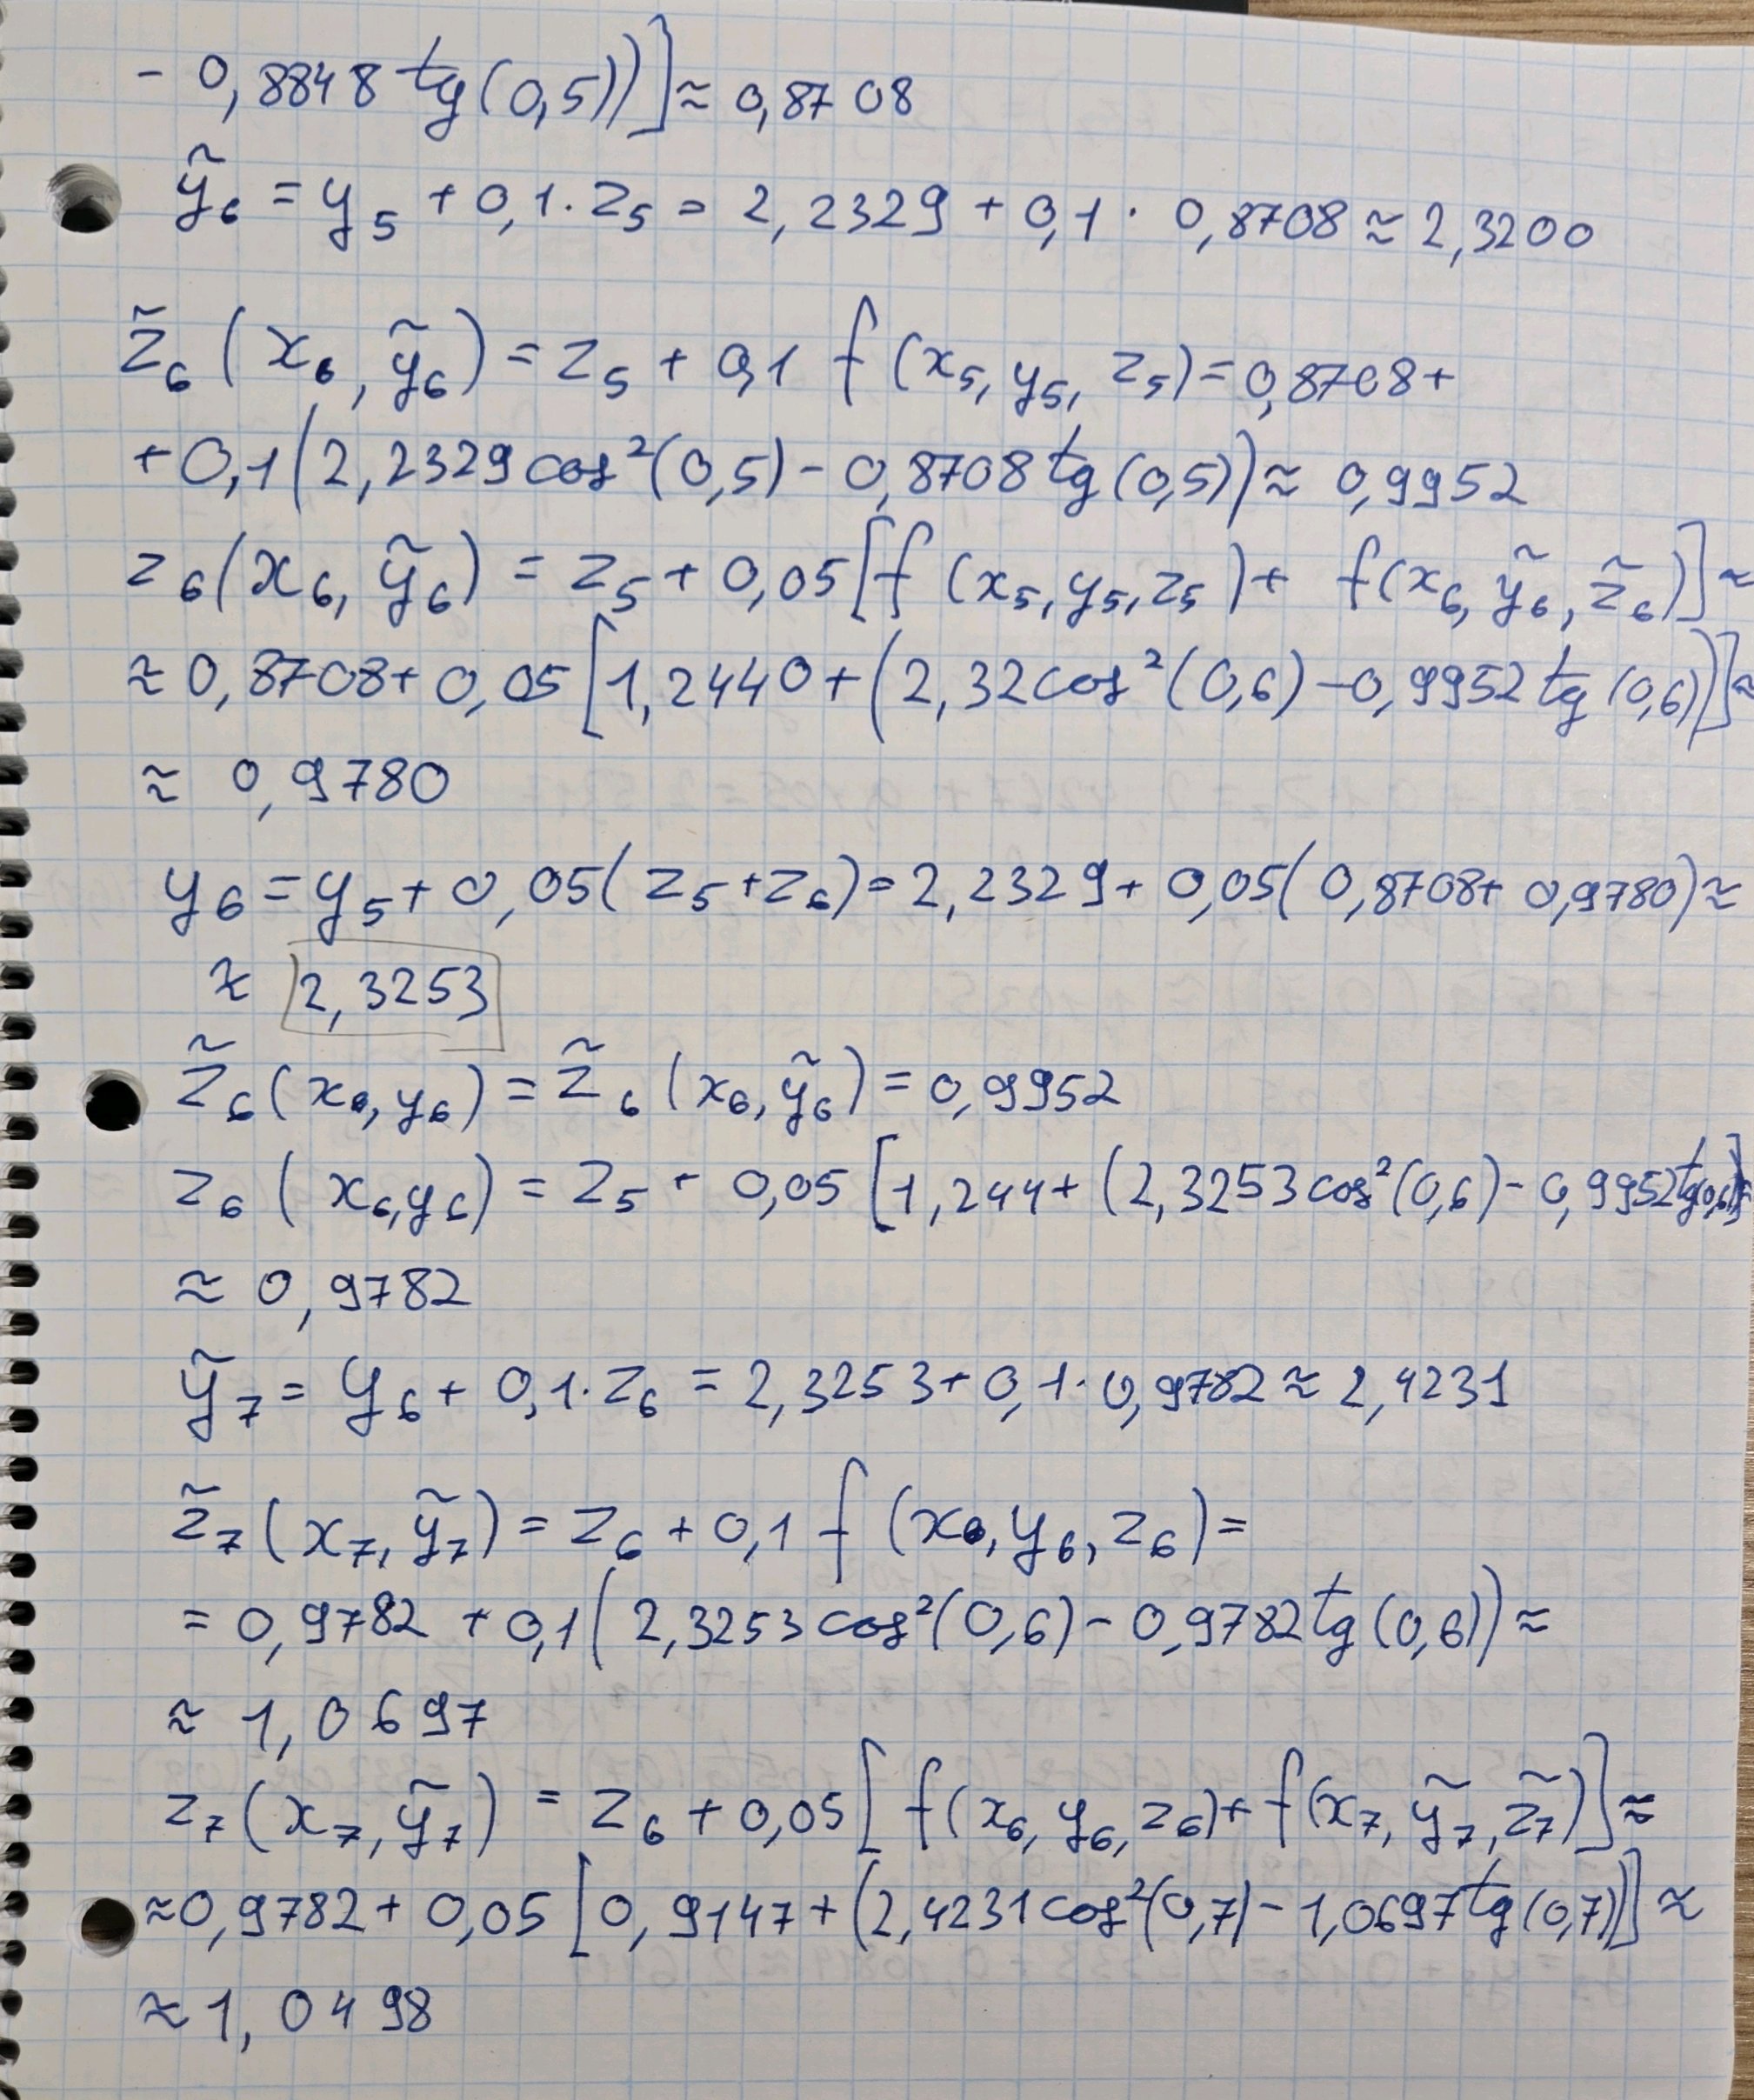 - 0,8848 tg(0,5))] ≈ 0,8708
ỹ₆ = y₅ + 0,1 · z₅ = 2,2329 + 0,1 · 0,8708 ≈ 2,3200
z̃₆(x₆, ỹ₆) = z₅ + 0,1 f(x₅, y₅, z₅) = 0,8708 +
+ 0,1(2,2329 cos²(0,5) - 0,8708 tg(0,5)) ≈ 0,9952
z₆(x₆, ỹ₆) = z₅ + 0,05[f(x₅, y₅, z₅) + f(x₆, ỹ₆, z̃₆)] ≈
≈ 0,8708 + 0,05[1,2440 + (2,32 cos²(0,6) - 0,9952 tg(0,6))] ≈
≈ 0,9780
y₆ = y₅ + 0,05(z₅ + z₆) = 2,2329 + 0,05(0,8708 + 0,9780) ≈
≈ 2,3253
z̃₆(x₆, y₆) = z̃₆(x₆, ỹ₆) = 0,9952
z₆(x₆, y₆) = z₅ + 0,05[1,244 + (2,3253 cos²(0,6) - 0,9952 tg(0,6))] ≈
≈ 0,9782
ỹ₇ = y₆ + 0,1 · z₆ = 2,3253 + 0,1 · 0,9782 ≈ 2,4231
z̃₇(x₇, ỹ₇) = z₆ + 0,1 f(x₆, y₆, z₆) =
= 0,9782 + 0,1(2,3253 cos²(0,6) - 0,9782 tg(0,6)) ≈
≈ 1,0697
z₇(x₇, ỹ₇) = z₆ + 0,05[f(x₆, y₆, z₆) + f(x₇, ỹ₇, z̃₇)] ≈
≈ 0,9782 + 0,05[0,9147 + (2,4231 cos²(0,7) - 1,0697 tg(0,7))] ≈
≈ 1,0498